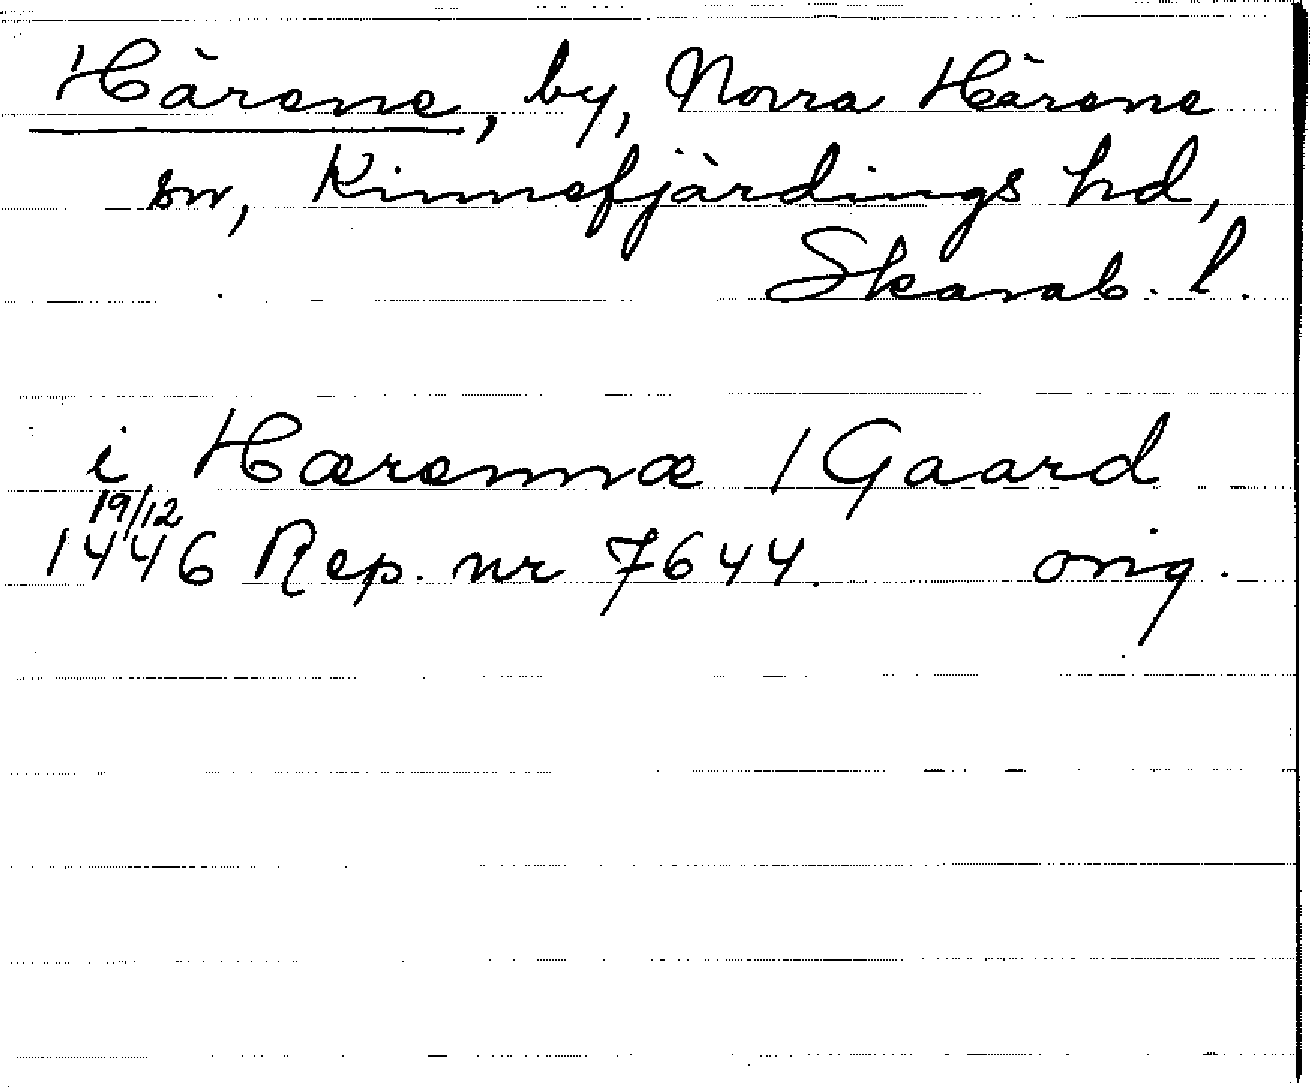 Härene, by, Norra Härene
sn, Kinnefjärdings hd,
Skarab. l.
i Hærennæ 1 Gaard
19/12
1446 Rep. nr 7644. orig.